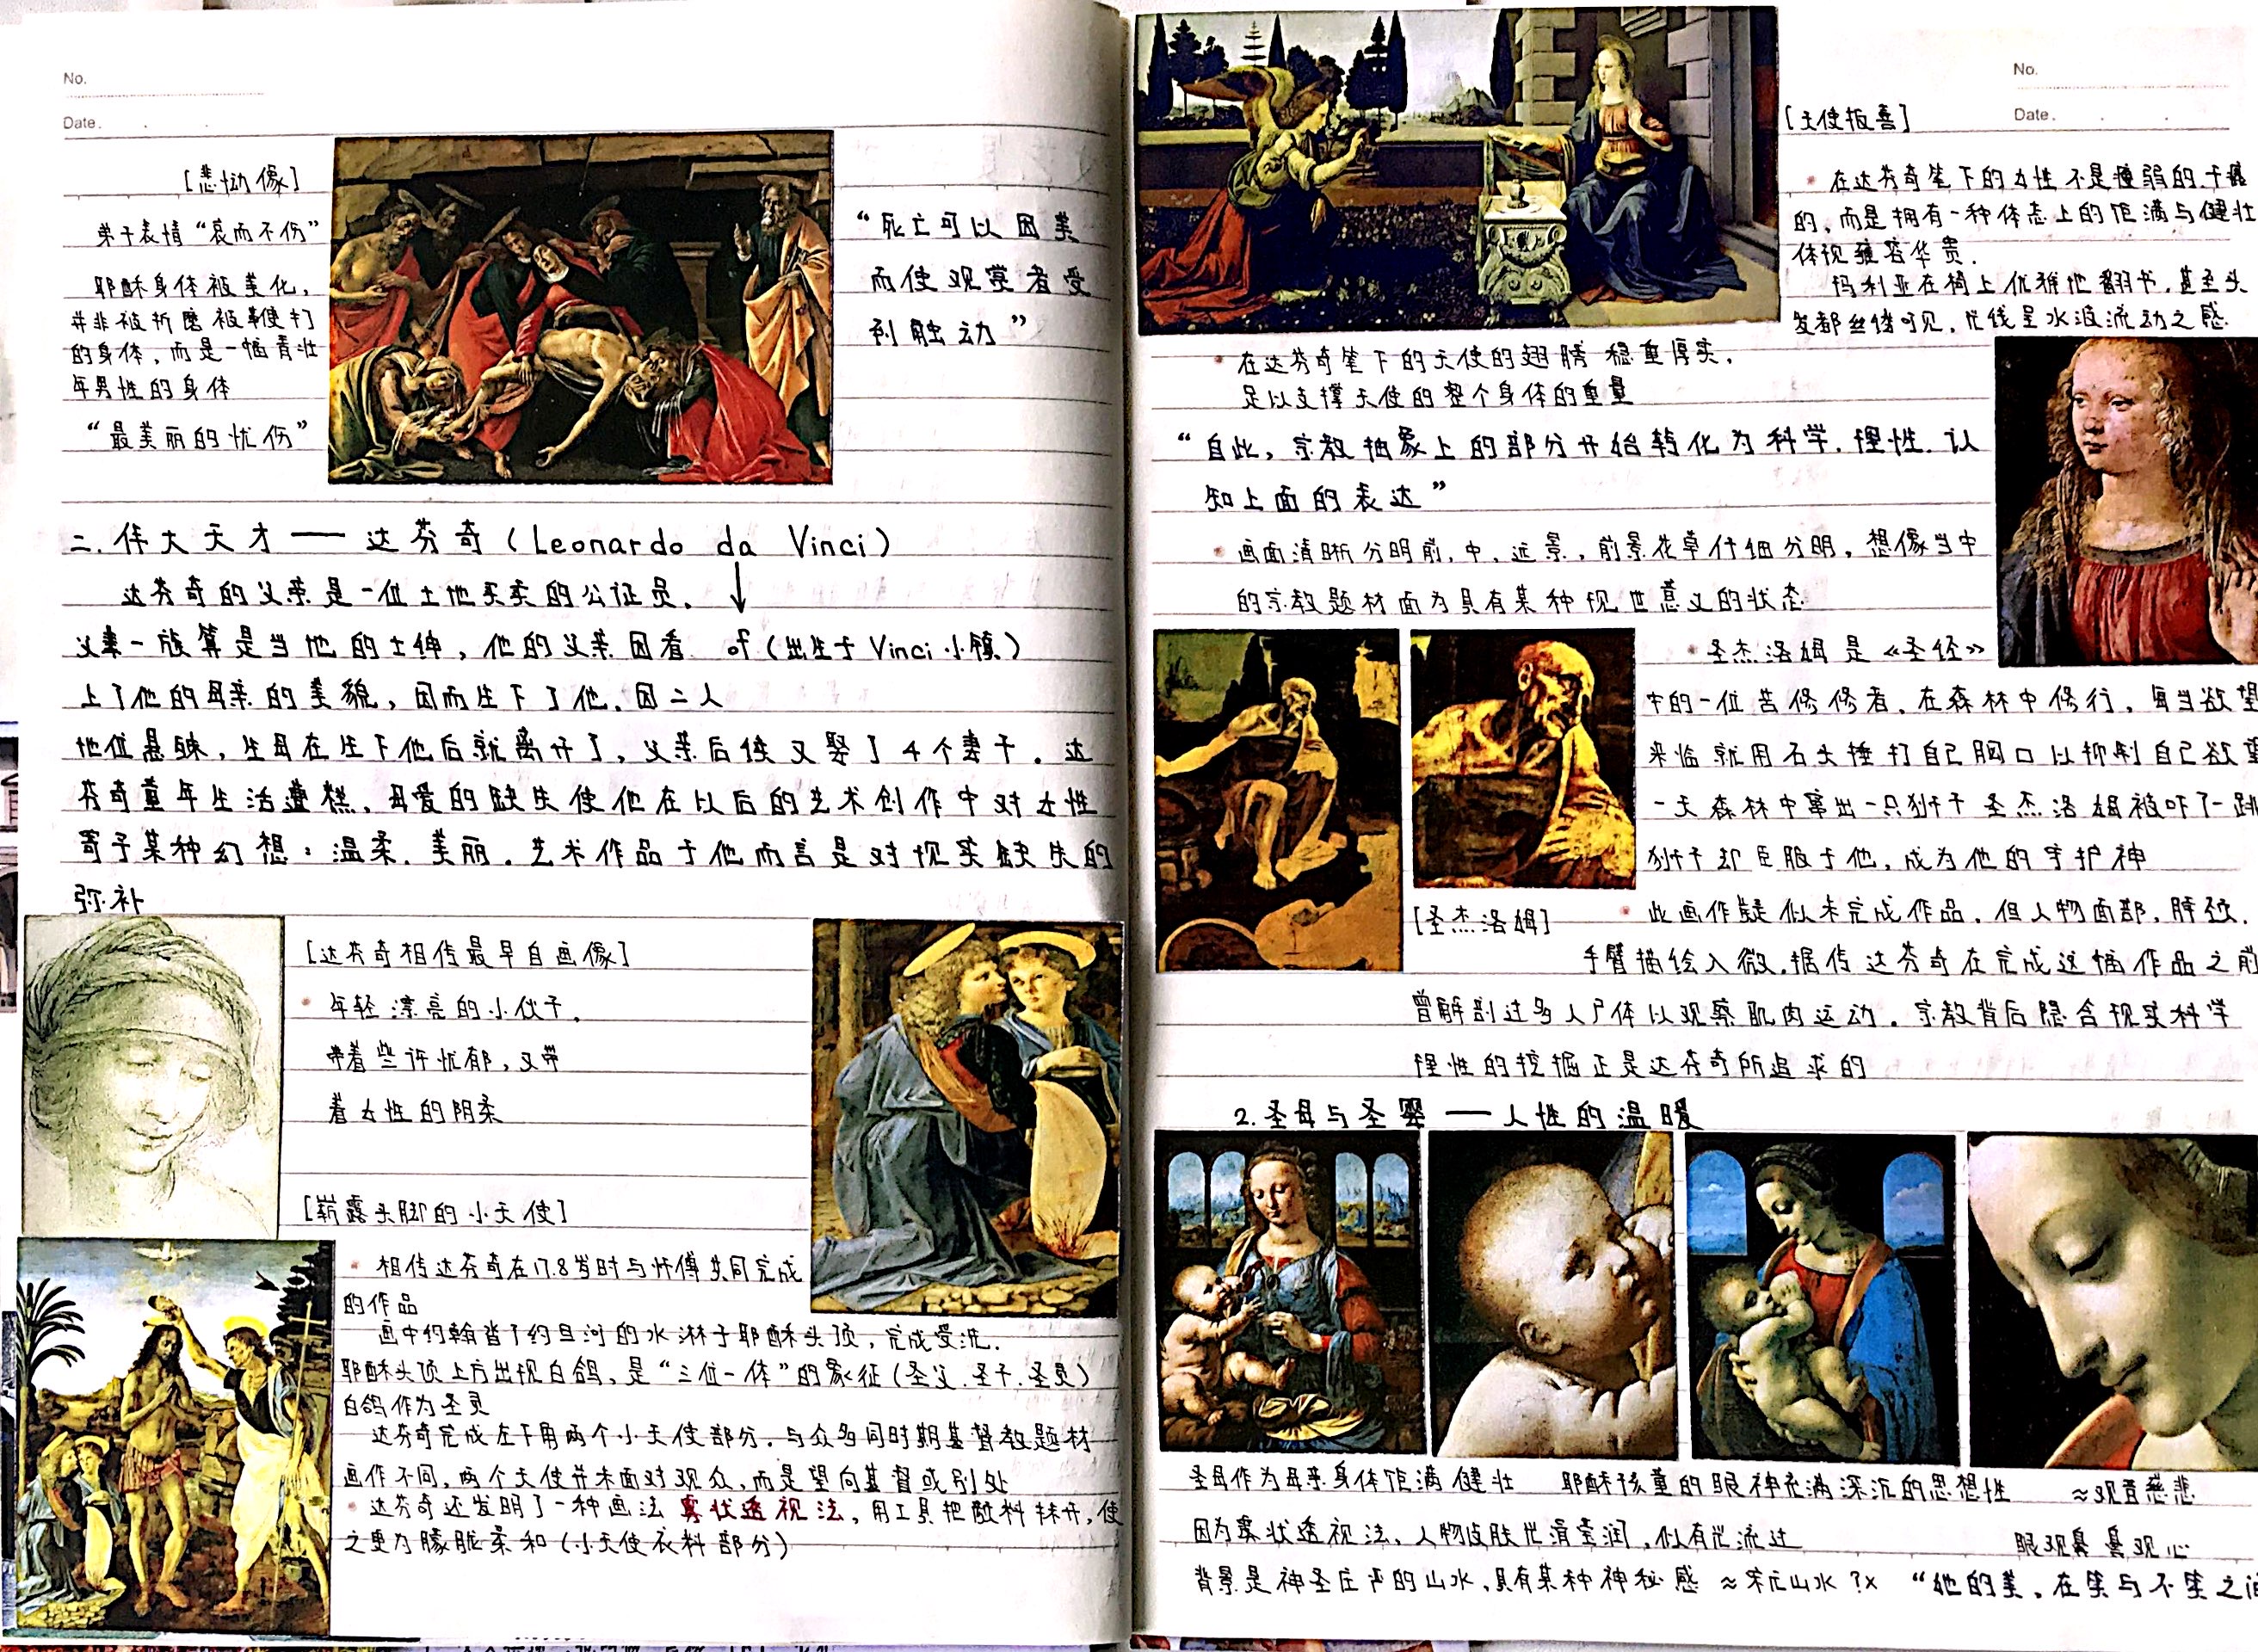 No.
Date.
[悲恸像]
弟子表情“哀而不伤”
耶酥身体被美化,
并非被折磨被鞭打
的身体,而是一幅青壮
年男性的身体
“最美丽的忧伤”
“死亡可以因美
而使观赏者受
到触动”
二.伟大天才——达芬奇(Leonardo da Vinci)
达芬奇的父亲是一位土地买卖的公证员.
父亲一族算是当地的士绅,他的父亲因看
of(出生于Vinci小镇)
上了他的母亲的美貌,因而生下了他.因二人
地位悬殊,生母在生下他后就离开了,父亲后续又娶了4个妻子.达
芬奇童年生活遭糕,母爱的缺失使他在以后的艺术创作中对女性
寄予某种幻想:温柔.美丽.艺术作品于他而言是对现实缺失的
弥补
[达芬奇相传最早自画像]
年轻漂亮的小伙子,
带着些许忧郁,又带
着女性的阴柔
[崭露头脚的小天使]
相传达芬奇在17.8岁时与师傅共同完成
的作品
画中约翰舀了约旦河的水淋于耶酥头顶,完成受洗.
耶酥头顶上方出现白鸽,是“三位一体”的象征(圣父.圣子.圣灵)
白鸽作为圣灵
达芬奇完成左下角两个小天使部分.与众多同时期基督教题材
画作不同,两个天使并未面对观众,而是望向基督或别处
达芬奇还发明了一种画法 雾状透视法,用工具把颜料抹开,使
之更为朦胧柔和(小天使衣料部分)
No.
Date.
[天使报喜]
在达芬奇笔下的女性不是瘦弱的.干瘪
的,而是拥有一种体态上的饱满与健壮
体现雍容华贵.
玛利亚在椅上优雅地翻书,甚至头
发都丝缕可见,光线呈水波流动之感
在达芬奇笔下的天使的翅膀稳重厚实,
足以支撑天使的整个身体的重量
“自此,宗教抽象上的部分开始转化为科学.理性.认
知上面的表达”
画面清晰分明前.中.远景,前景花草仔细分明,想像当中
的宗教题材面为具有某种现世意义的状态
圣杰洛姆是《圣经》
中的一位苦修修者,在森林中修行,每当欲望
来临就用石头捶打自己胸口以抑制自己欲望
一天森林中窜出一只狮子 圣杰洛姆被吓了一跳
狮子却臣服于他,成为他的守护神
[圣杰洛姆]
此画作疑似未完成作品,但人物面部.脖颈.
手臂描绘入微.据传达芬奇在完成这幅作品之前
曾解剖过多人尸体以观察肌肉运动.宗教背后隐含现实科学
理性的挖掘正是达芬奇所追求的
2.圣母与圣婴——人性的温暖
圣母作为母亲身体饱满健壮 耶酥孩童的眼神充满深沉的思想性 ≈观音慈悲
因为雾状透视法,人物皮肤光滑莹润,似有光流过
眼观鼻鼻观心
背景是神圣庄严的山水,具有某种神秘感 ≈宋元山水?x “她的美,在笑与不笑之间